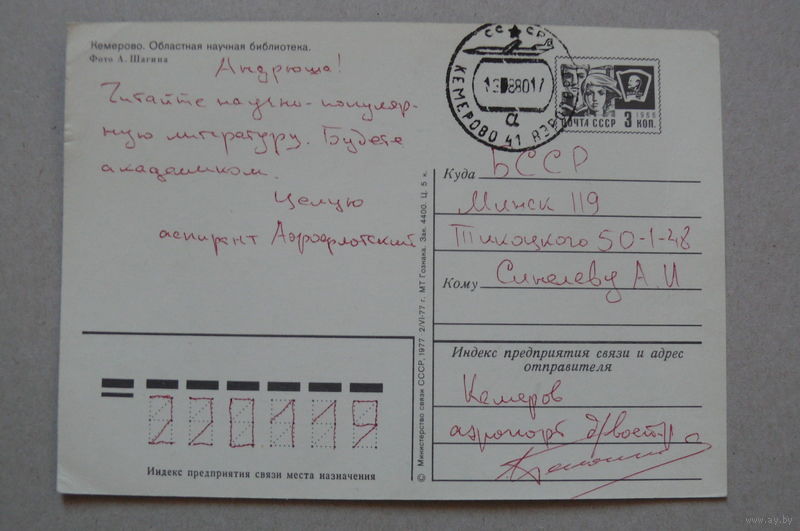 Кемерово. Областная научная библиотека.
Фото А. Шагина
Андрюша!
Читайте научно-популяр-
ную литературу. Будете
академиком.
Целую
аспирант Аэрофлотский
СССР
КЕМЕРОВО 41 АЭРО
а
ПОЧТА СССР 3 КОП.
1966
Куда БССР
Минск 119
Тикоцкого 50-1-48
Кому Синелеву А.И
Индекс предприятия связи и адрес
отправителя
Кемеров
аэропорт д/востр.
220119
Индекс предприятия связи места назначения
© Министерство связи СССР, 1977. 2/VI-77 г. МТ Гознака. Зак. 4400. Ц. 5 к.
www.ay.by